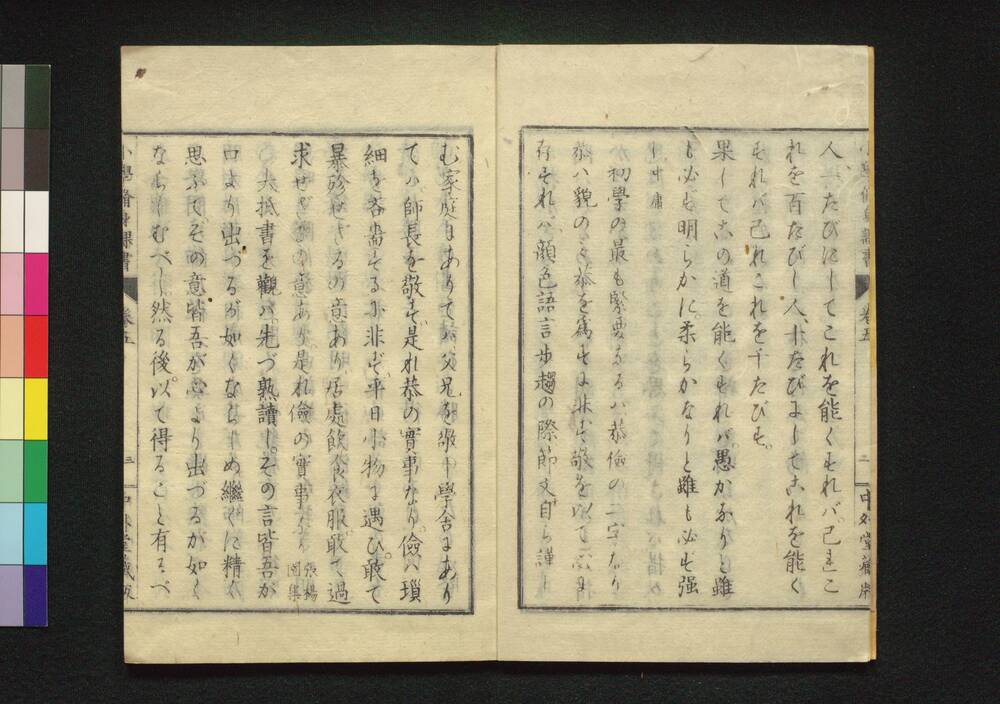 人一たびにしてこれを能くすれバ己れこ
れを百たびし人十たびにしてこれを能く
すれバ己れこれを千たびす
果してこの道を能くすれバ愚かなりと雖
も必す明らかに柔らかなりと雖も必す强
し 中庸
初學の最も緊要なるハ恭儉の二字なり
恭ハ貌の
存すれバ顔色語言步趨の際節文自ら謹
む家庭にありてハ父兄を敬し學舍にあり
てハ師長を敬す是れ恭の實事なり儉ハ瑣
細を吝嗇するに非ず平日小物に遇ひ敢て
暴殄せざるの意あり居處飮食衣服敢て過
求せざるの意あり是れ儉の實事なり 張楊園集
大抵書を觀バ先づ熟讀しその言皆吾が
口より出づるが如くならしめ繼ぐに精
思以てその意皆吾が心より出づるが如く
ならしむべし然る後以て得ること有るべ
小學脩身課書 卷五 三
卷五 二 中外堂藏版